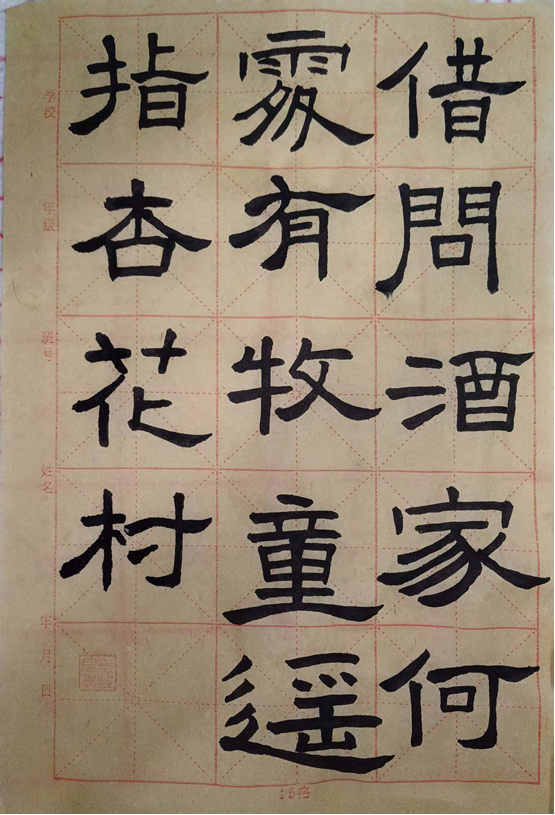 借問酒家何
處有牧童遥
指杏花村
学校
年级
班号
姓名
年月日
15格